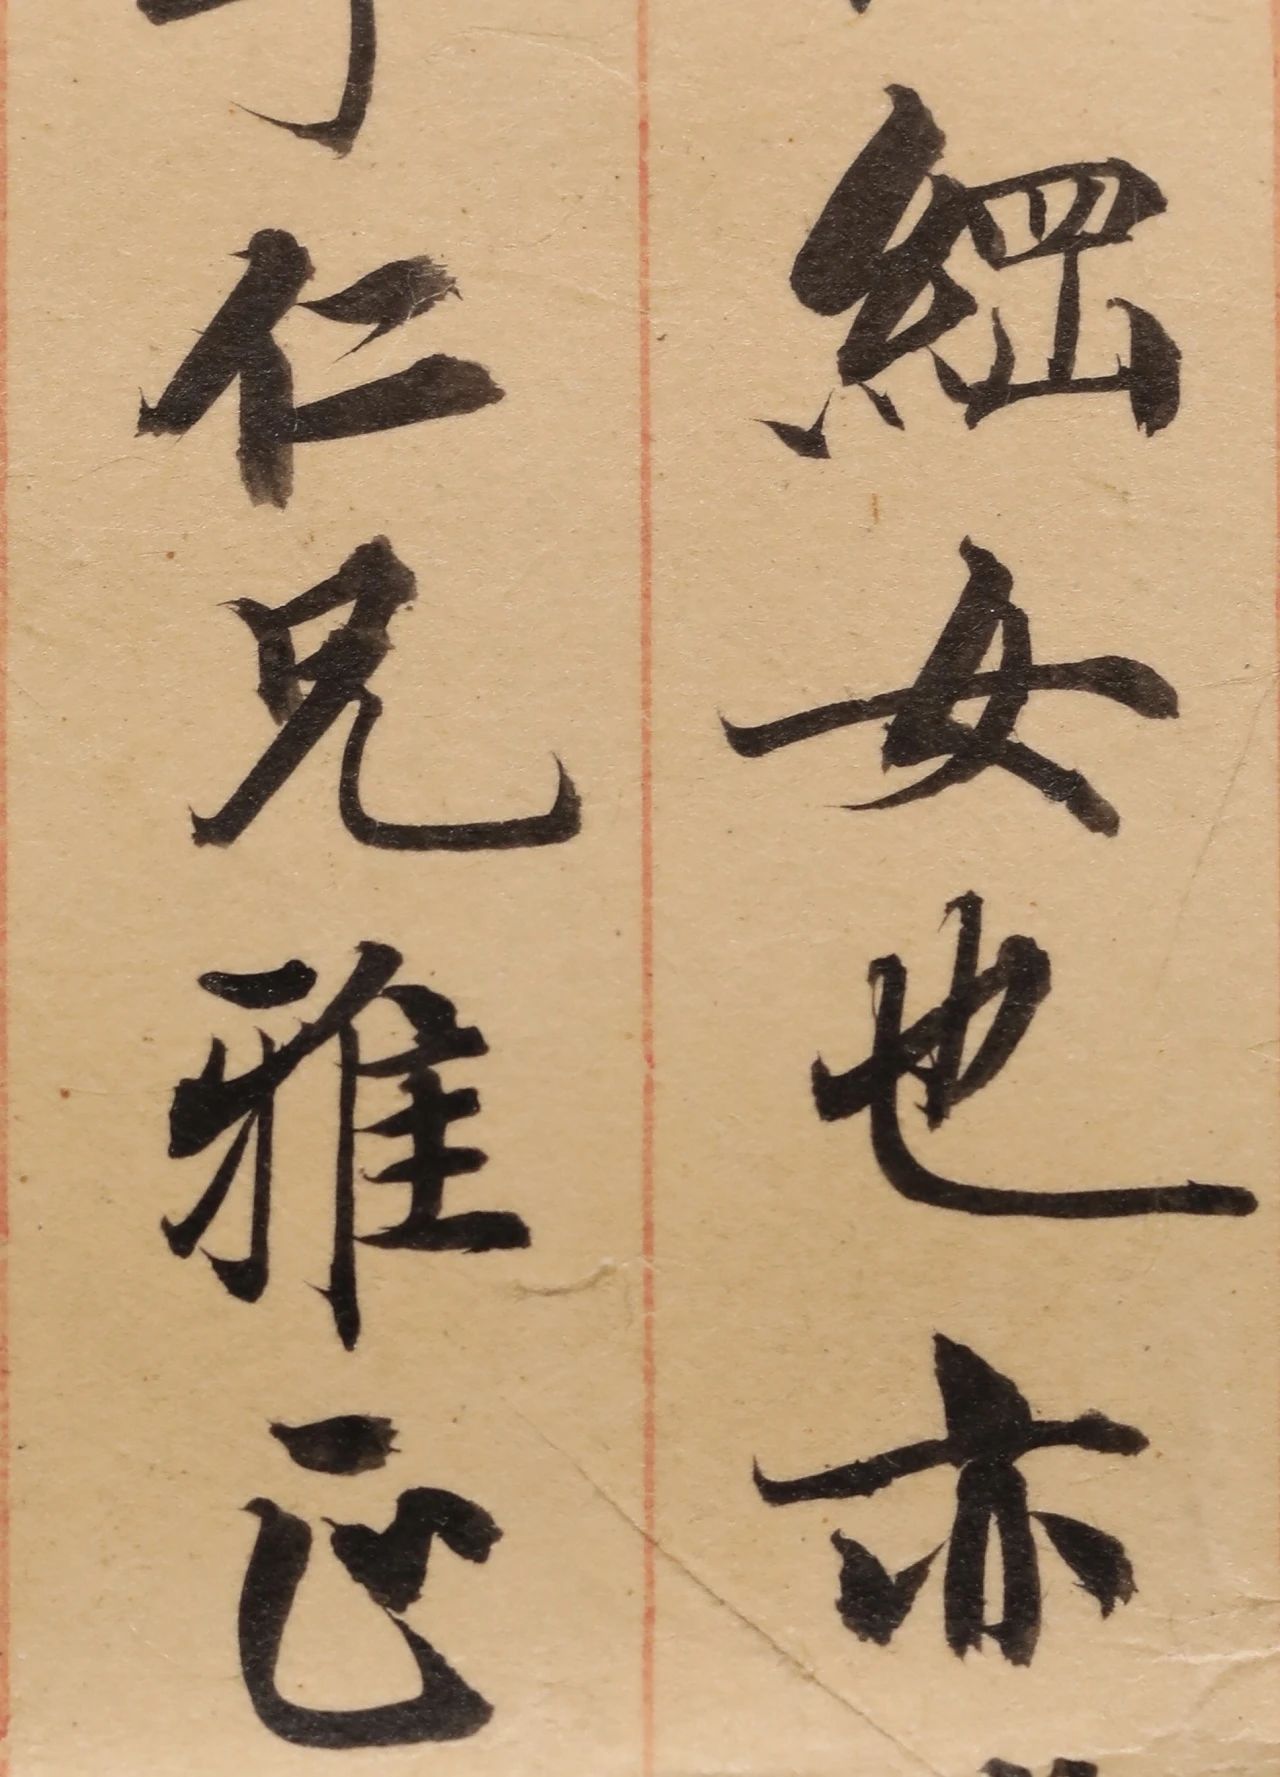 綱女也亦
仁兄雅正